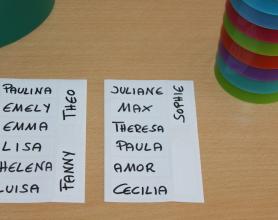 PAULINA
EMELY
EMMA
LISA
HELENA
LUISA
THEO
FANNY
JULIANE
MAX
THERESA
PAULA
AMOR
CECILIA
SOPHIE